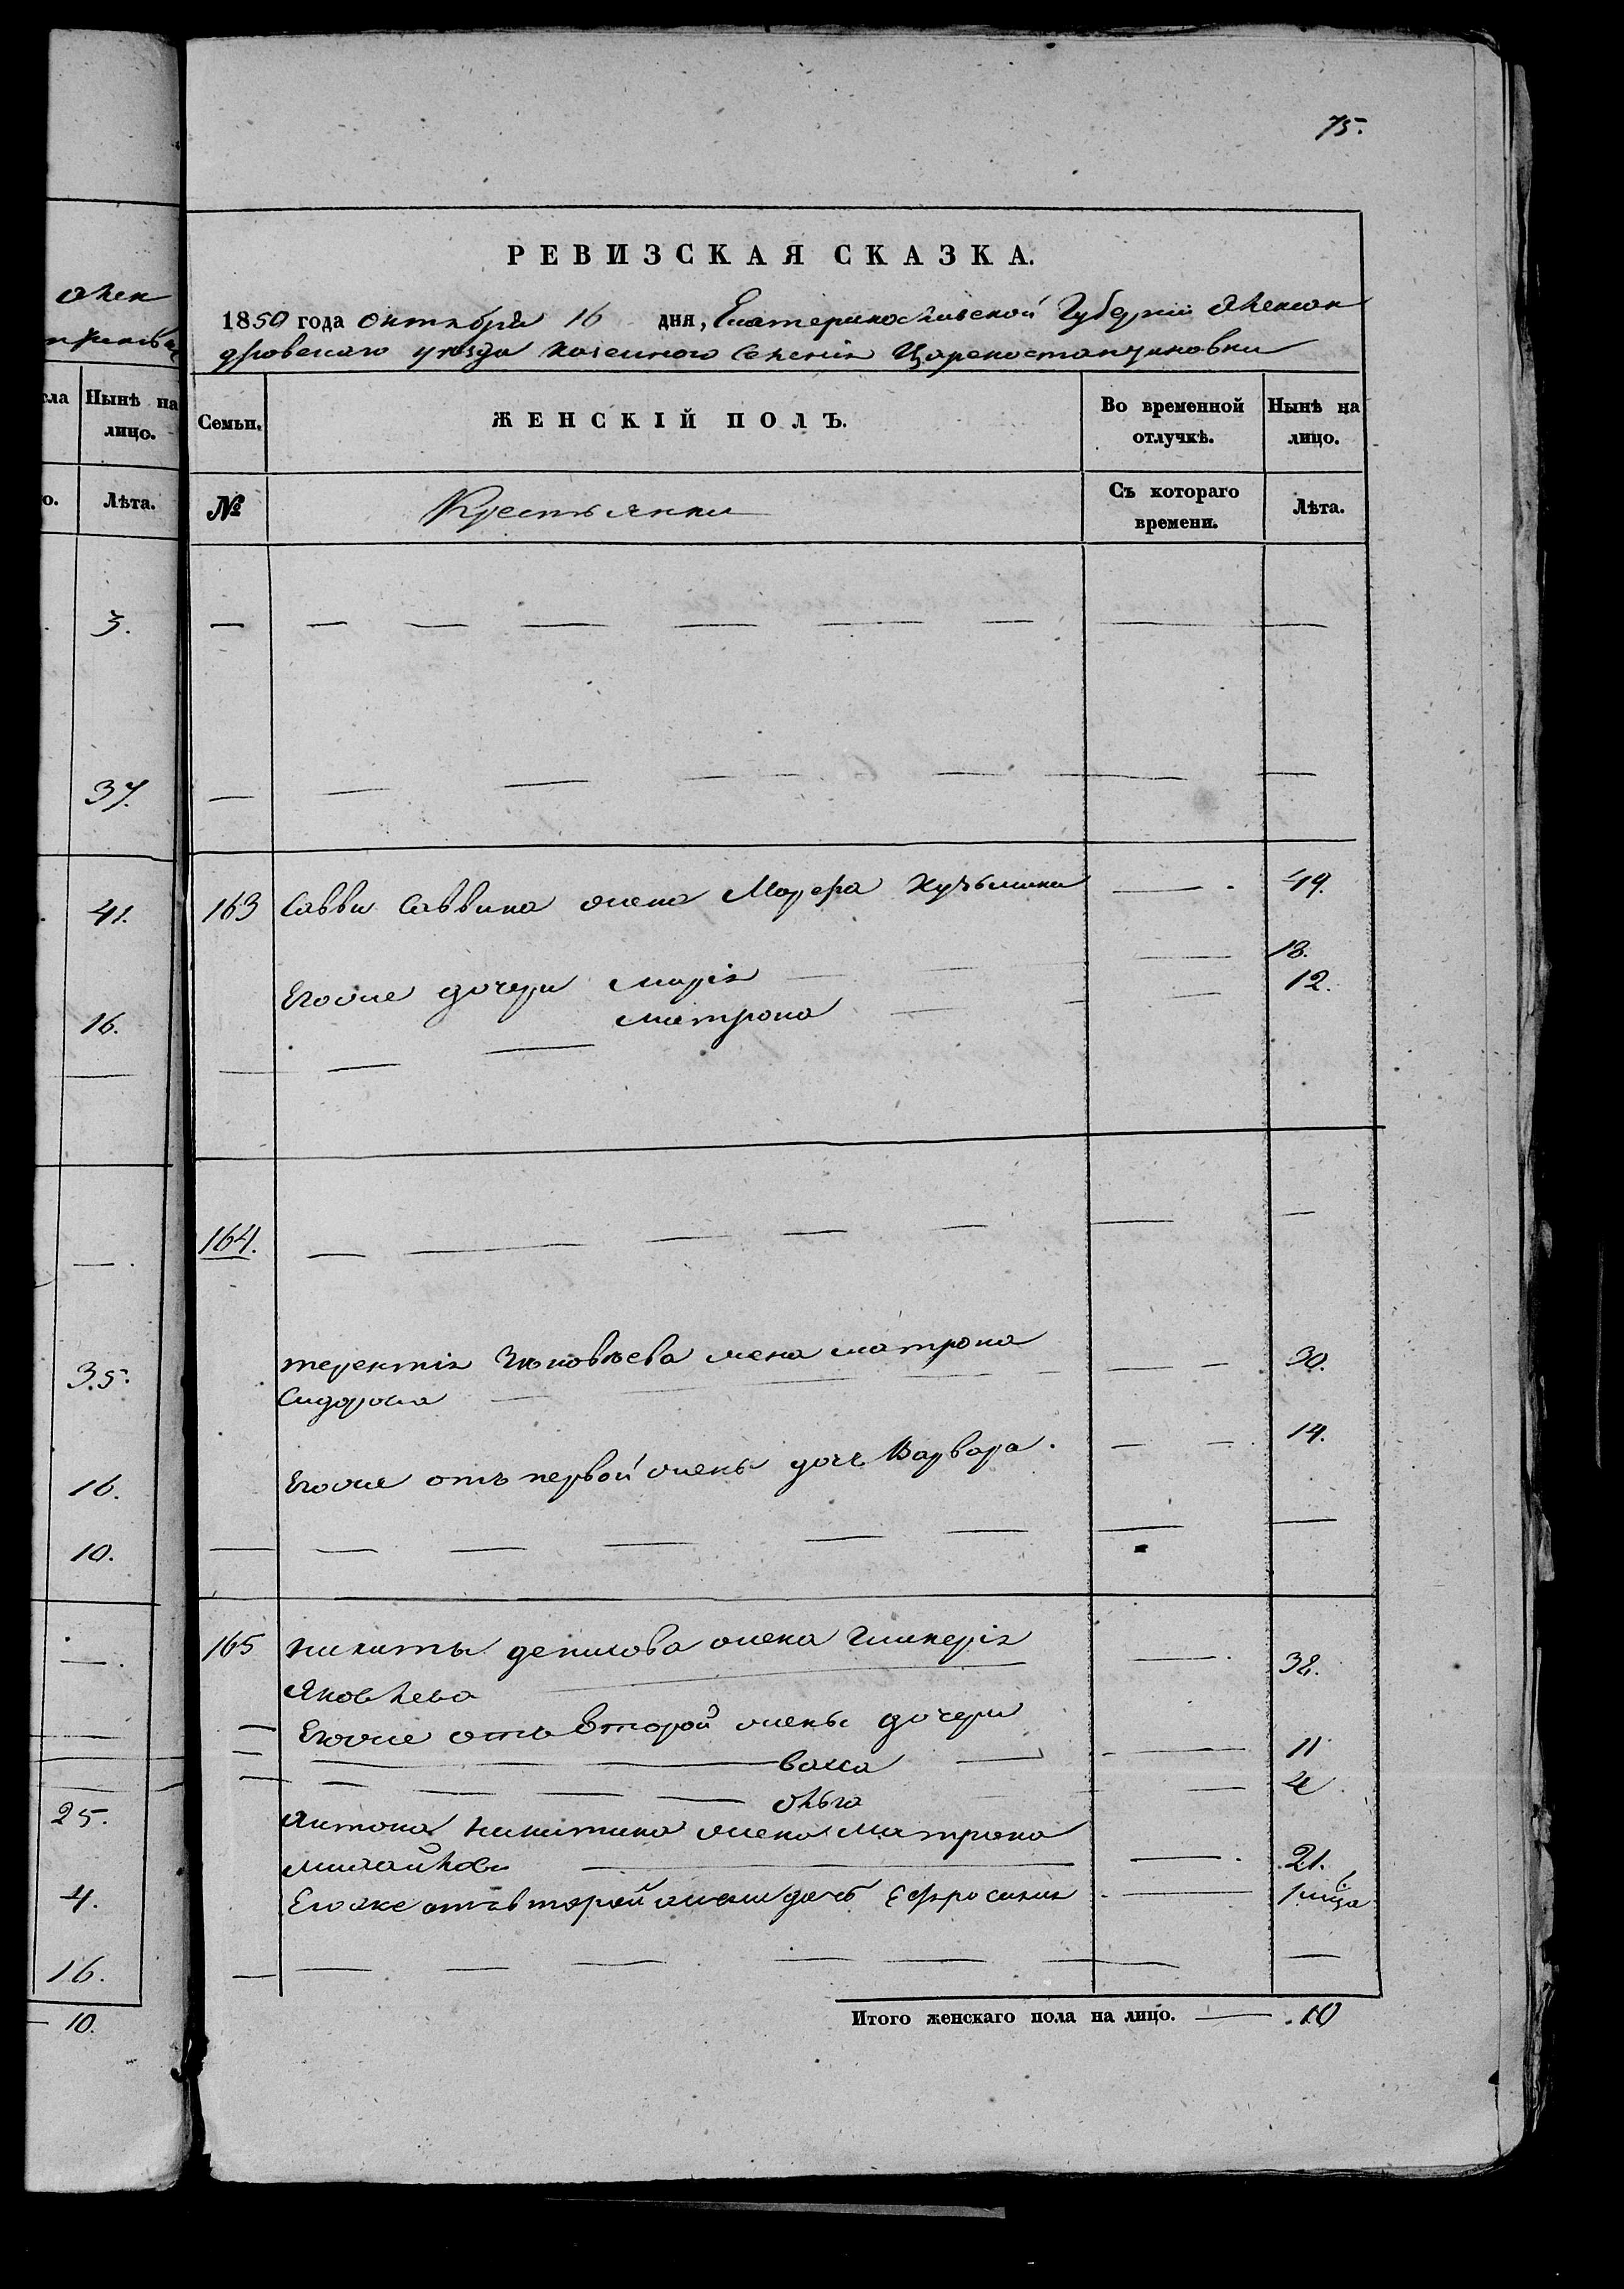 75.
Р Е В И З С К А Я С К А З К А.
1850 года октября 16 дня, Екатеринославской Губерніи Алексан
дровскаго уезда казенного Селенія Цареконстантиновки
Семьи.
Ж Е Н С К І Й П О Л Ъ.
Во временной отлучкѣ.
Нынѣ на лицо.
№
Крестьянки
Съ котораго времени.
Лѣта.
163 Саввы Саввина жена Марфа Кузьмина 49.
Егоже дочери Марія 18.
Матрона 12.
164.
Терентія Зиновьева жена Матрона 30.
Сидорова
Егоже отъ первой жены дочь Варвара. 14.
165 Никиты Данилова жена Гликерія 38.
Яковлева
Егоже отъ второй жены дочери
Васса 11
Ольга 4
Антона Никитина жена Матрона
Михайлова 21.
Егоже отъ второй жены дочь Ефросинія
Итого женскаго пола на лицо. 10
Нынѣ на лицо.
Лѣта.
3.
37.
41.
16.
35.
16.
10.
25.
4.
16.
10.